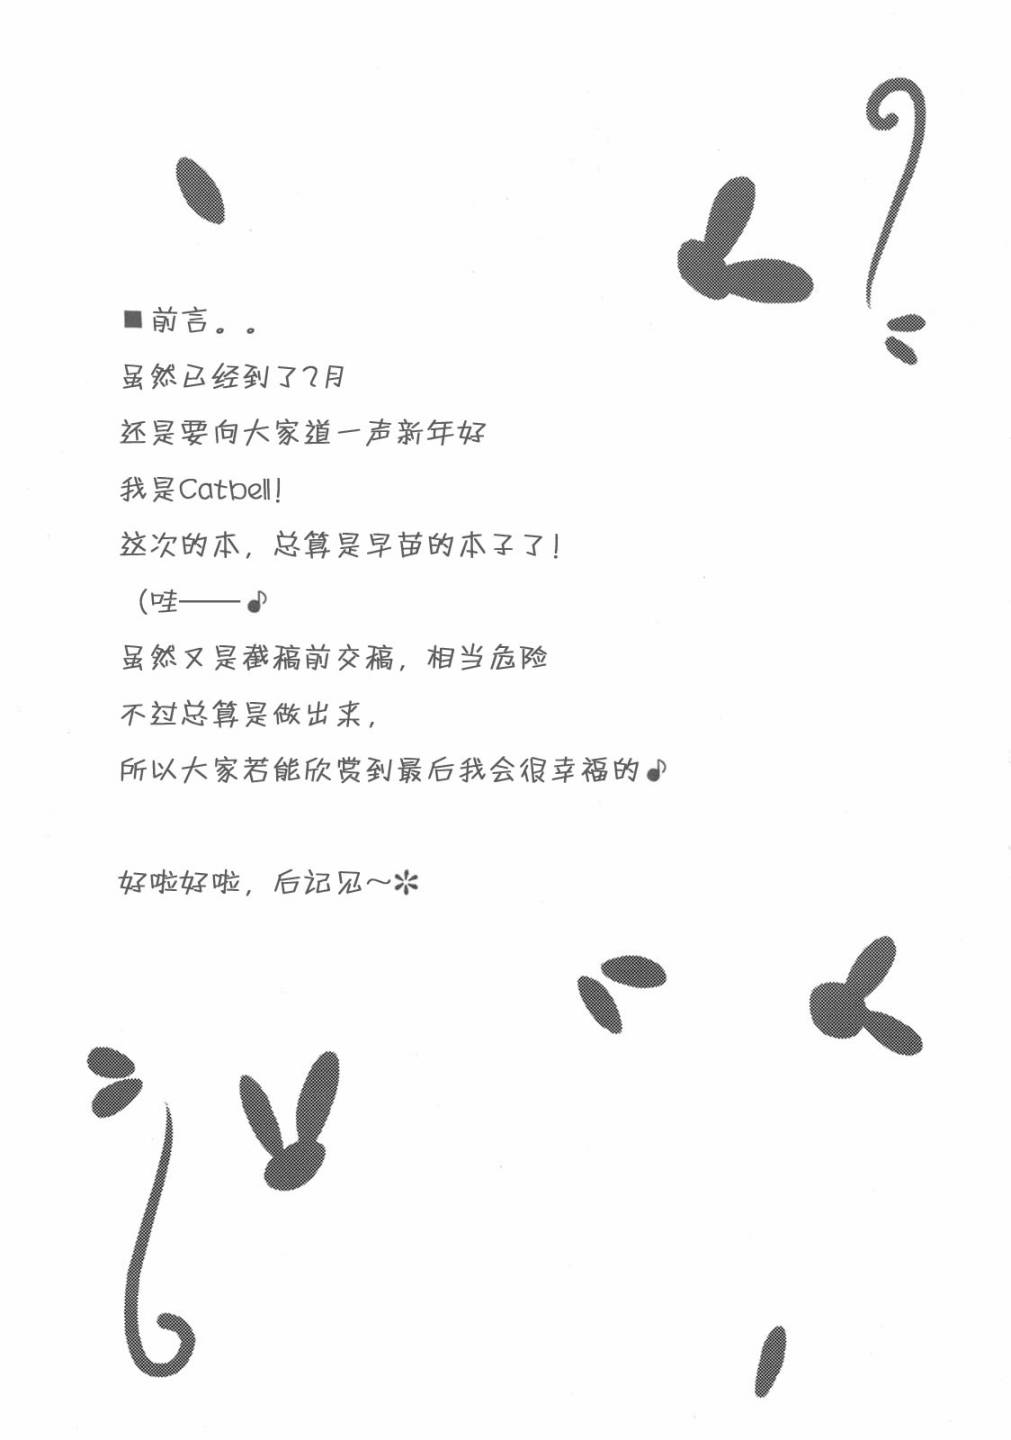 ■前言。。
虽然已经到了2月
还是要向大家道一声新年好
我是Catbell!
这次的本，总算是早苗的本子了！
（哇——♪
虽然又是截稿前交稿，相当危险
不过总算是做出来，
所以大家若能欣赏到最后我会很幸福的♪
好啦好啦，后记见～✼